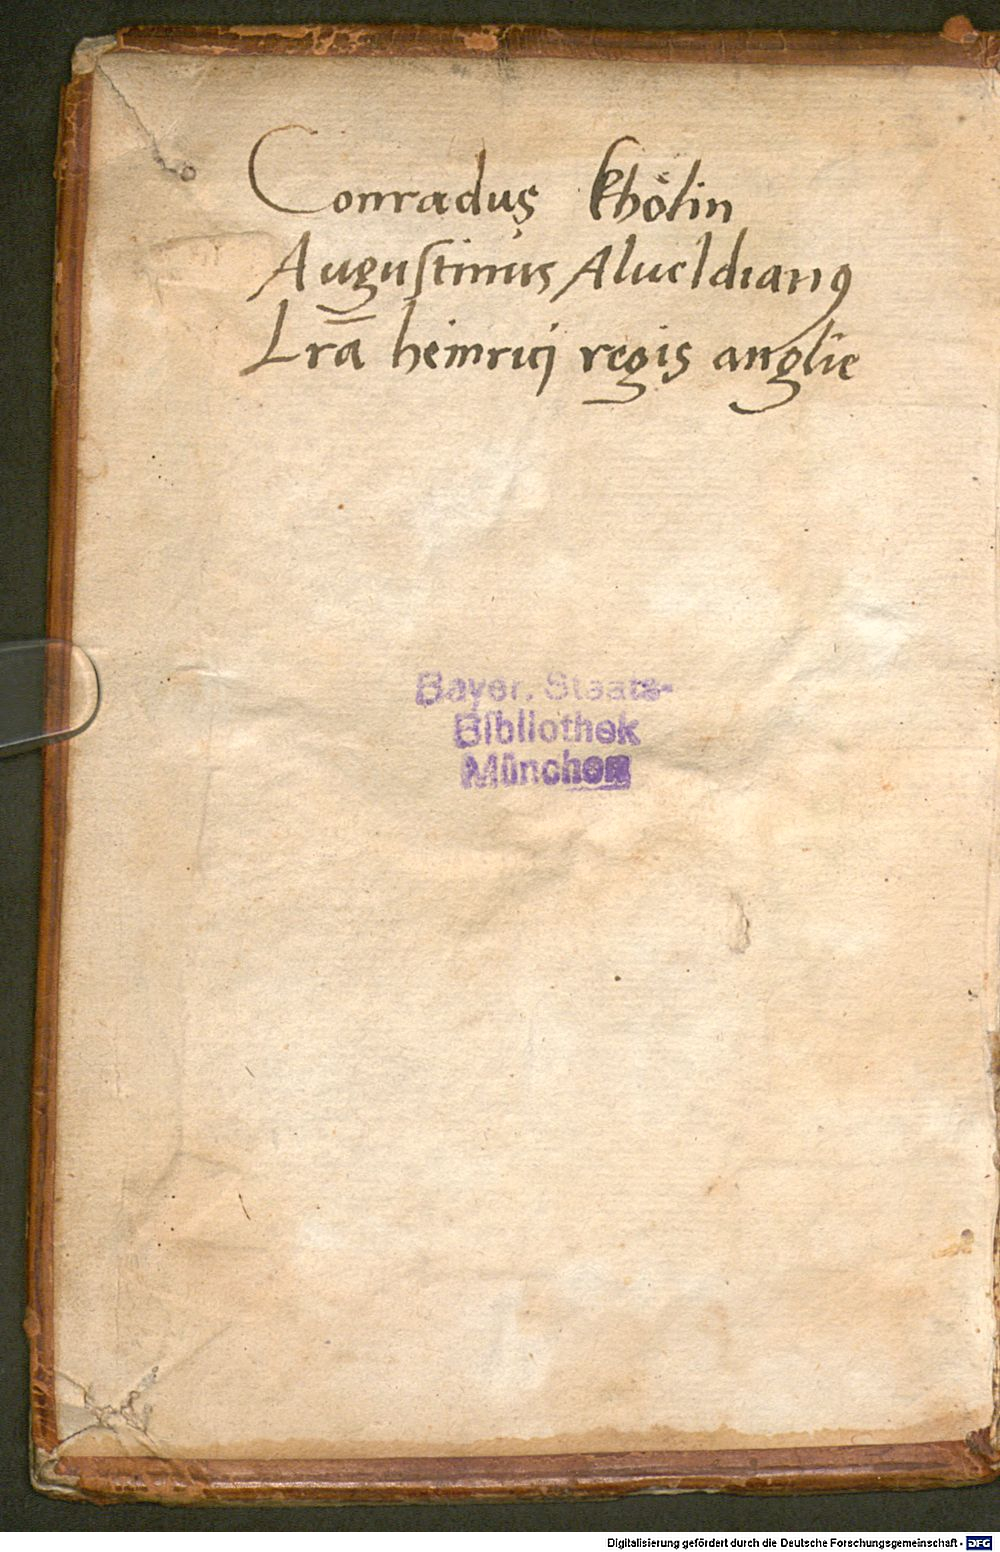 Conradus khölin
Auguſtinus Alueldianꝯ
Lr̄a heinricj regis anglie
Bayer. Staats-
Bibliothek
München
Digitalisierung gefördert durch die Deutsche Forschungsgemeinschaft - DFG